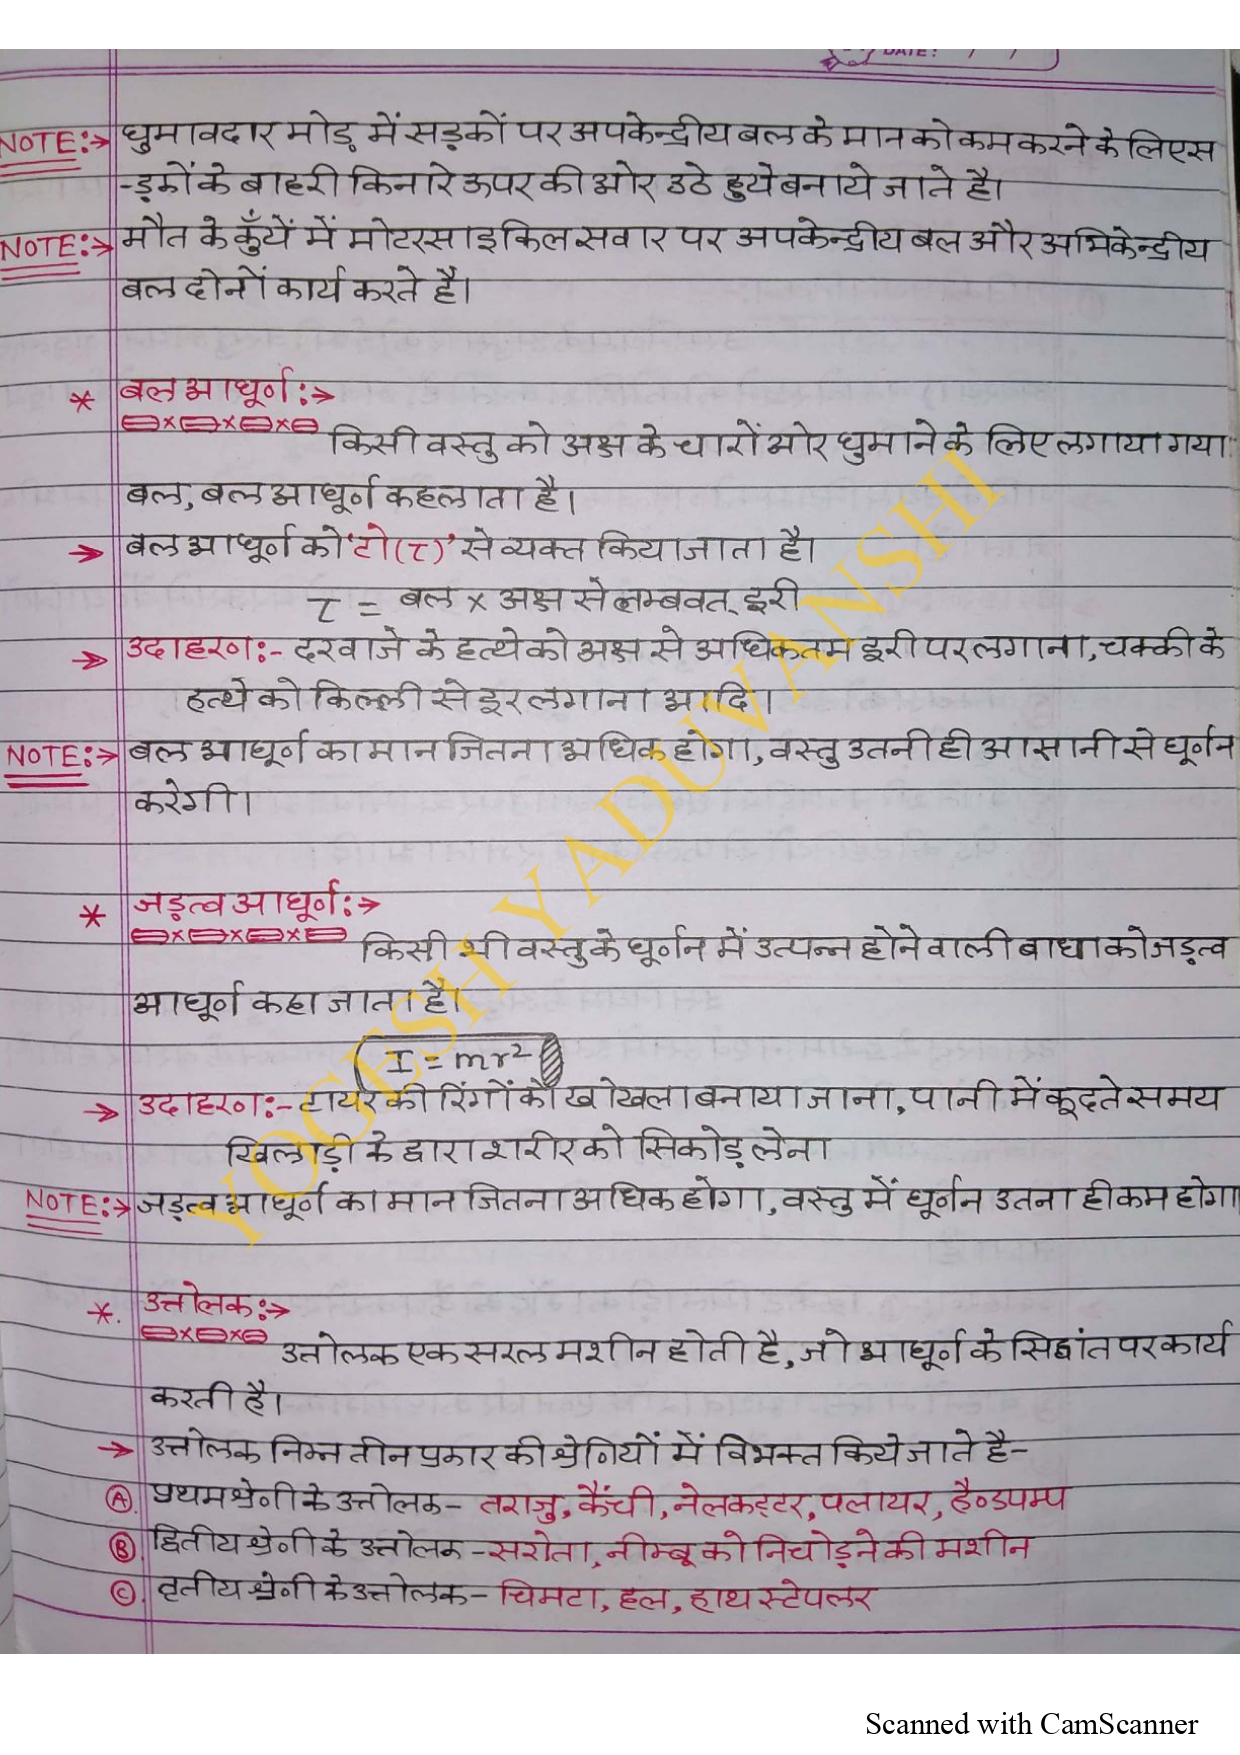 DATE: / /
NOTE:→ घुमावदार मोड़ में सड़कों पर अपकेन्द्रीय बल के मान को कम करने के लिए स
-ड़कों के बाहरी किनारे ऊपर की ओर उठे हुये बनाये जाते है।
NOTE:→ मौत के कुँयें में मोटरसाइकिल सवार पर अपकेन्द्रीय बल और अभिकेन्द्रीय
बल दोनों कार्य करते है।
* बल आघूर्ण:→
किसी वस्तु को अक्ष के चारों ओर घुमाने के लिए लगाया गया
बल, बल आघूर्ण कहलाता है।
→ बल आघूर्ण को 'टो(τ)' से व्यक्त किया जाता है।
τ = बल × अक्ष से लम्बवत् दूरी
→ उदाहरण:- दरवाजे के हत्थे को अक्ष से अधिकतम दूरी पर लगाना, चक्की के
हत्थे को किल्ली से दूर लगाना आदि।
NOTE:→ बल आघूर्ण का मान जितना अधिक होगा, वस्तु उतनी ही आसानी से घूर्णन
करेगी।
* जड़त्व आघूर्ण:→
किसी भी वस्तु के घूर्णन में उत्पन्न होने वाली बाधा को जड़त्व
आघूर्ण कहा जाता है।
I = mr²
→ उदाहरण:- टायर की रिंगों को खोखला बनाया जाना, पानी में कूदते समय
खिलाड़ी के द्वारा शरीर को सिकोड़ लेना
NOTE:→ जड़त्व आघूर्ण का मान जितना अधिक होगा, वस्तु में घूर्णन उतना ही कम होगा
*. उत्तोलक:→
उत्तोलक एक सरल मशीन होती है, जो आघूर्ण के सिद्वांत पर कार्य
करती है।
→ उत्तोलक निम्न तीन प्रकार की श्रेणियों में विभक्त किये जाते है-
(A). प्रथम श्रेणी के उत्तोलक- तराजु, कैंची, नेलकट्टर, पलायर, हैण्डपम्प
(B). द्वितीय श्रेणी के उत्तोलक- सरोता, नीम्बू को निचोड़ने की मशीन
(C). तृतीय श्रेणी के उत्तोलक- चिमटा, हल, हाथ स्टेपलर
YOGESH YADUVANSHI
Scanned with CamScanner